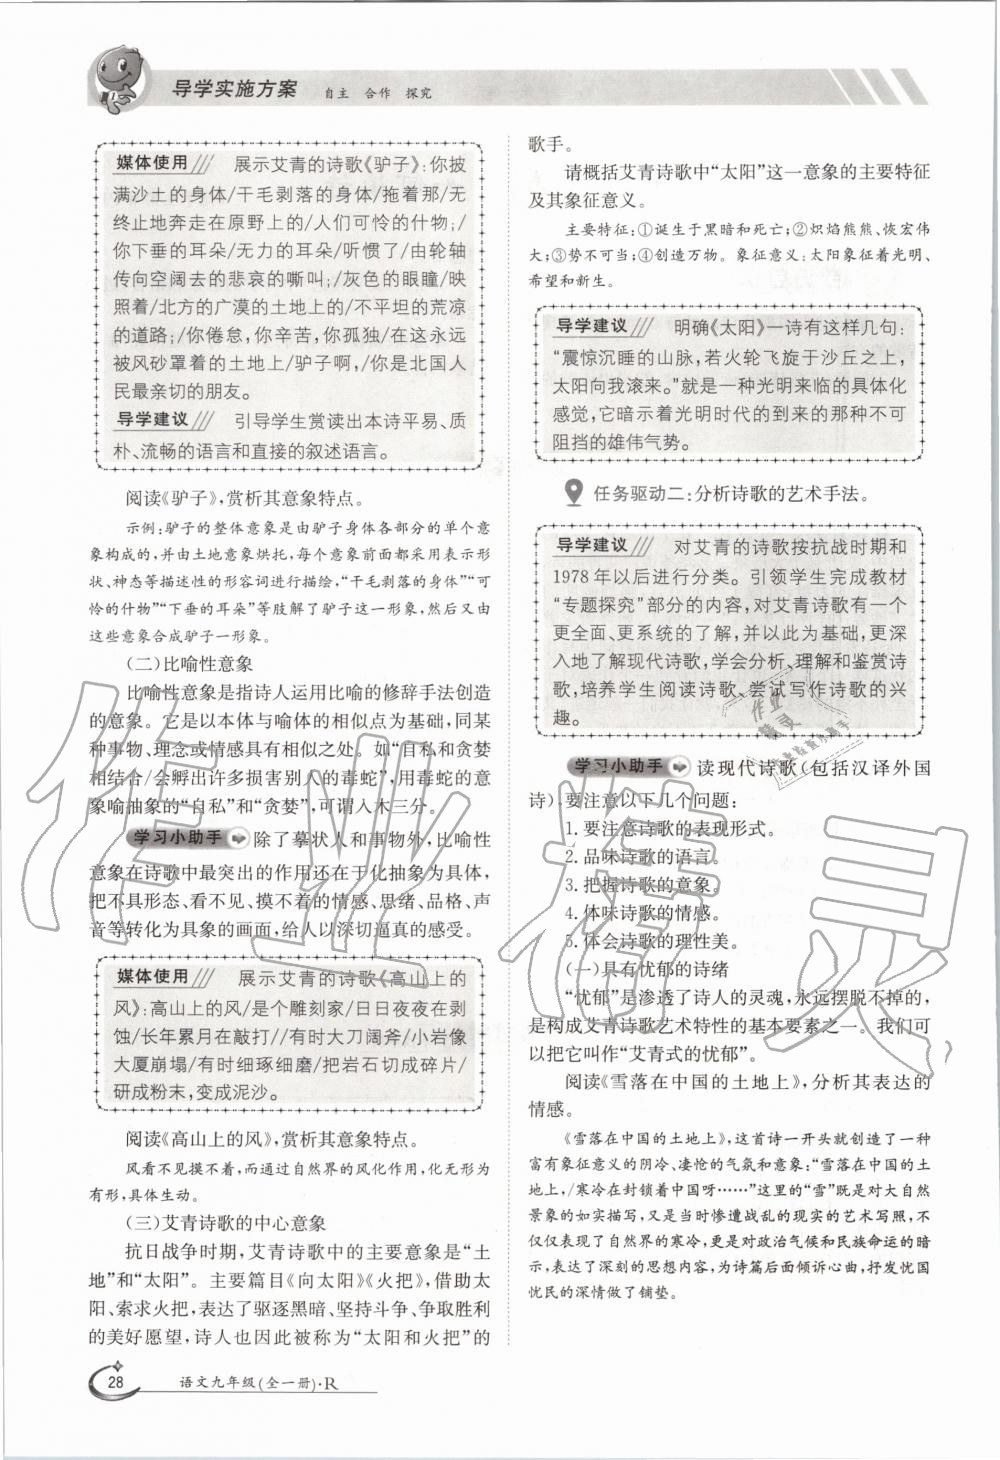 导学实施方案 自主 合作 探究
媒体使用 展示艾青的诗歌《驴子》:你披
满沙土的身体/干毛剥落的身体/拖着那/无
终止地奔走在原野上的/人们可怜的什物;/
你下垂的耳朵/无力的耳朵/听惯了/由轮轴
传向空阔去的悲哀的嘶叫;/灰色的眼瞳/映
照着/北方的广漠的土地上的/不平坦的荒凉
的道路;/你倦怠,你辛苦,你孤独/在这永远
被风砂罩着的土地上/驴子啊,/你是北国人
民最亲切的朋友。
导学建议 引导学生赏读出本诗平易、质
朴、流畅的语言和直接的叙述语言。
阅读《驴子》,赏析其意象特点。
示例:驴子的整体意象是由驴子身体各部分的单个意
象构成的,并由土地意象烘托,每个意象前面都采用表示形
状、神态等描述性的形容词进行描绘,“干毛剥落的身体”“可
怜的什物”“下垂的耳朵”等肢解了驴子这一形象,然后又由
这些意象合成驴子一形象。
(二)比喻性意象
比喻性意象是指诗人运用比喻的修辞手法创造
的意象。它是以本体与喻体的相似点为基础,同某
种事物、理念或情感具有相似之处。如“自私和贪婪
相结合/会孵出许多损害别人的毒蛇”,用毒蛇的意
象喻抽象的“自私”和“贪婪”,可谓入木三分。
学习小助手 除了摹状人和事物外,比喻性
意象在诗歌中最突出的作用还在于化抽象为具体,
把不具形态、看不见、摸不着的情感、思绪、品格、声
音等转化为具象的画面,给人以深切逼真的感受。
媒体使用 展示艾青的诗歌《高山上的
风》:高山上的风/是个雕刻家/日日夜夜在剥
蚀/长年累月在敲打//有时大刀阔斧/小岩像
大厦崩塌/有时细琢细磨/把岩石切成碎片/
研成粉末,变成泥沙。
阅读《高山上的风》,赏析其意象特点。
风看不见摸不着,而通过自然界的风化作用,化无形为
有形,具体生动。
(三)艾青诗歌的中心意象
抗日战争时期,艾青诗歌中的主要意象是“土
地”和“太阳”。主要篇目《向太阳》《火把》,借助太
阳、索求火把,表达了驱逐黑暗、坚持斗争、争取胜利
的美好愿望,诗人也因此被称为“太阳和火把”的
歌手。
请概括艾青诗歌中“太阳”这一意象的主要特征
及其象征意义。
主要特征:①诞生于黑暗和死亡;②炽焰熊熊、恢宏伟
大;③势不可当;④创造万物。象征意义:太阳象征着光明、
希望和新生。
导学建议 明确《太阳》一诗有这样几句:
“震惊沉睡的山脉,若火轮飞旋于沙丘之上,
太阳向我滚来。”就是一种光明来临的具体化
感觉,它暗示着光明时代的到来的那种不可
阻挡的雄伟气势。
任务驱动二:分析诗歌的艺术手法。
导学建议 对艾青的诗歌按抗战时期和
1978年以后进行分类。引领学生完成教材
“专题探究”部分的内容,对艾青诗歌有一个
更全面、更系统的了解,并以此为基础,更深
入地了解现代诗歌,学会分析、理解和鉴赏诗
歌,培养学生阅读诗歌、尝试写作诗歌的兴
趣。
学习小助手 读现代诗歌(包括汉译外国
诗),要注意以下几个问题:
1.要注意诗歌的表现形式。
2.品味诗歌的语言。
3.把握诗歌的意象。
4.体味诗歌的情感。
5.体会诗歌的理性美。
(一)具有忧郁的诗绪
“忧郁”是渗透了诗人的灵魂,永远摆脱不掉的,
是构成艾青诗歌艺术特性的基本要素之一。我们可
以把它叫作“艾青式的忧郁”。
阅读《雪落在中国的土地上》,分析其表达的
情感。
《雪落在中国的土地上》,这首诗一开头就创造了一种
富有象征意义的阴冷、凄怆的气氛和意象:“雪落在中国的土
地上,/寒冷在封锁着中国呀……”这里的“雪”既是对大自然
景象的如实描写,又是当时惨遭战乱的现实的艺术写照,不
仅仅表现了自然界的寒冷,更是对政治气候和民族命运的暗
示,表达了深刻的思想内容,为诗篇后面倾诉心曲,抒发忧国
忧民的深情做了铺垫。
28 语文九年级(全一册)·R
作业精灵